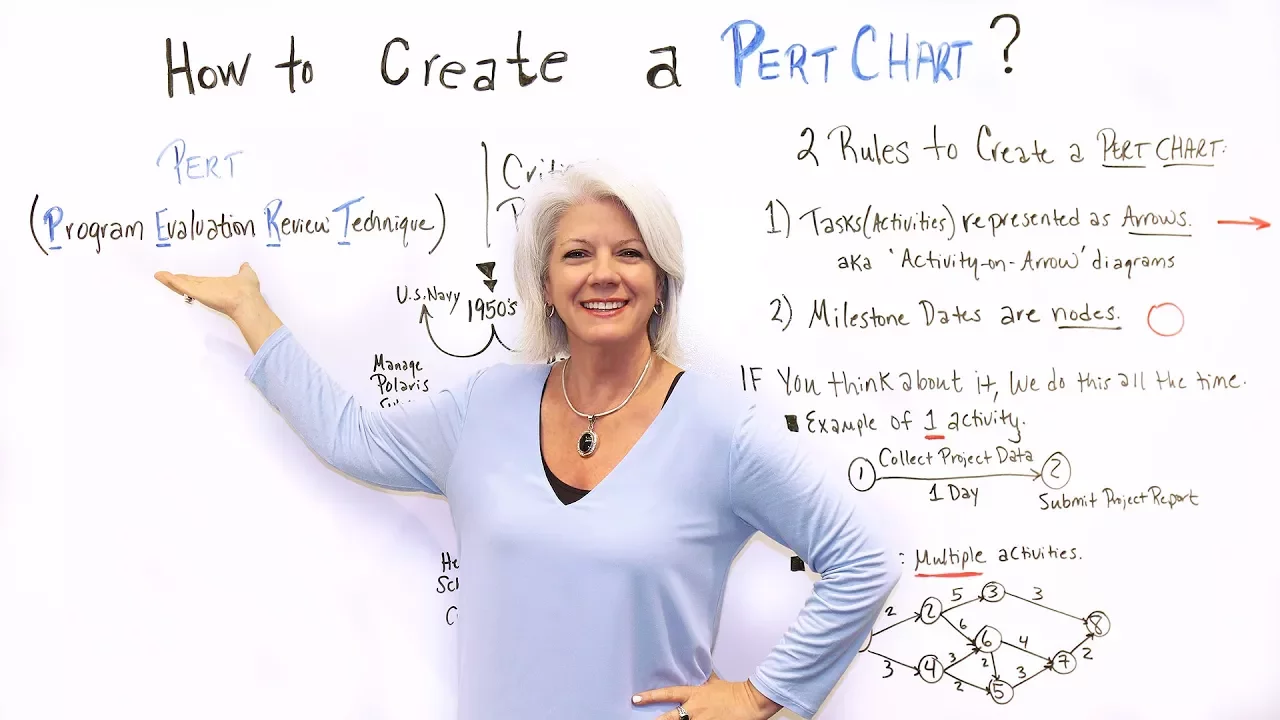 How to Create a PERT CHART?
PERT
(Program Evaluation Review Technique)
U.S. Navy
1950's
Manage
Polaris
2 Rules to Create a PERT CHART:
1) Tasks (Activities) represented as Arrows.
aka 'Activity-on-Arrow' diagrams
2) Milestone Dates are nodes.
IF You think about it, We do this all the time.
Example of 1 activity.
1 Collect Project Data 2
1 Day
Submit Project Report
: Multiple activities.
2 2 5 3 3 8
6 6 4 2
3 4 3 2 7
2 5 3